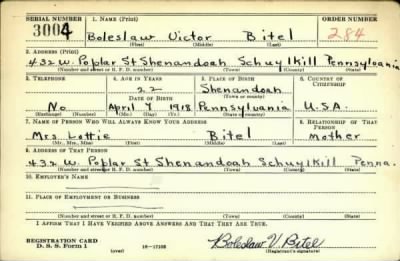 SERIAL NUMBER 1. NAME (Print) ORDER NUMBER
3004 Boleslaw Victor Bitel 284
(First) (Middle) (Last)
2. ADDRESS (Print)
432 W. Poplar St Shenandoah Schuylkill Pennsylvania
(Number and street or R. F. D. number) (Town) (County) (State)
3. TELEPHONE 4. AGE IN YEARS 5. PLACE OF BIRTH 6. COUNTRY OF CITIZENSHIP
22 Shenandoah
DATE OF BIRTH (Town or county)
No April 7 1918 Pennsylvania U.S.A.
(Exchange) (Number) (Mo.) (Day) (Yr.) (State or country)
7. NAME OF PERSON WHO WILL ALWAYS KNOW YOUR ADDRESS 8. RELATIONSHIP OF THAT PERSON
Mrs. Lottie Bitel Mother
(Mr., Mrs., Miss) (First) (Middle) (Last)
9. ADDRESS OF THAT PERSON
432 W. Poplar St Shenandoah Schuylkill Penna.
(Number and street or R. F. D. number) (Town) (County) (State)
10. EMPLOYER'S NAME
11. PLACE OF EMPLOYMENT OR BUSINESS
(Number and street or R. F. D. number) (Town) (County) (State)
I AFFIRM THAT I HAVE VERIFIED ABOVE ANSWERS AND THAT THEY ARE TRUE.
REGISTRATION CARD
D. S. S. Form 1 (over) 16-17105 Boleslaw V. Bitel
(Registrant's signature)